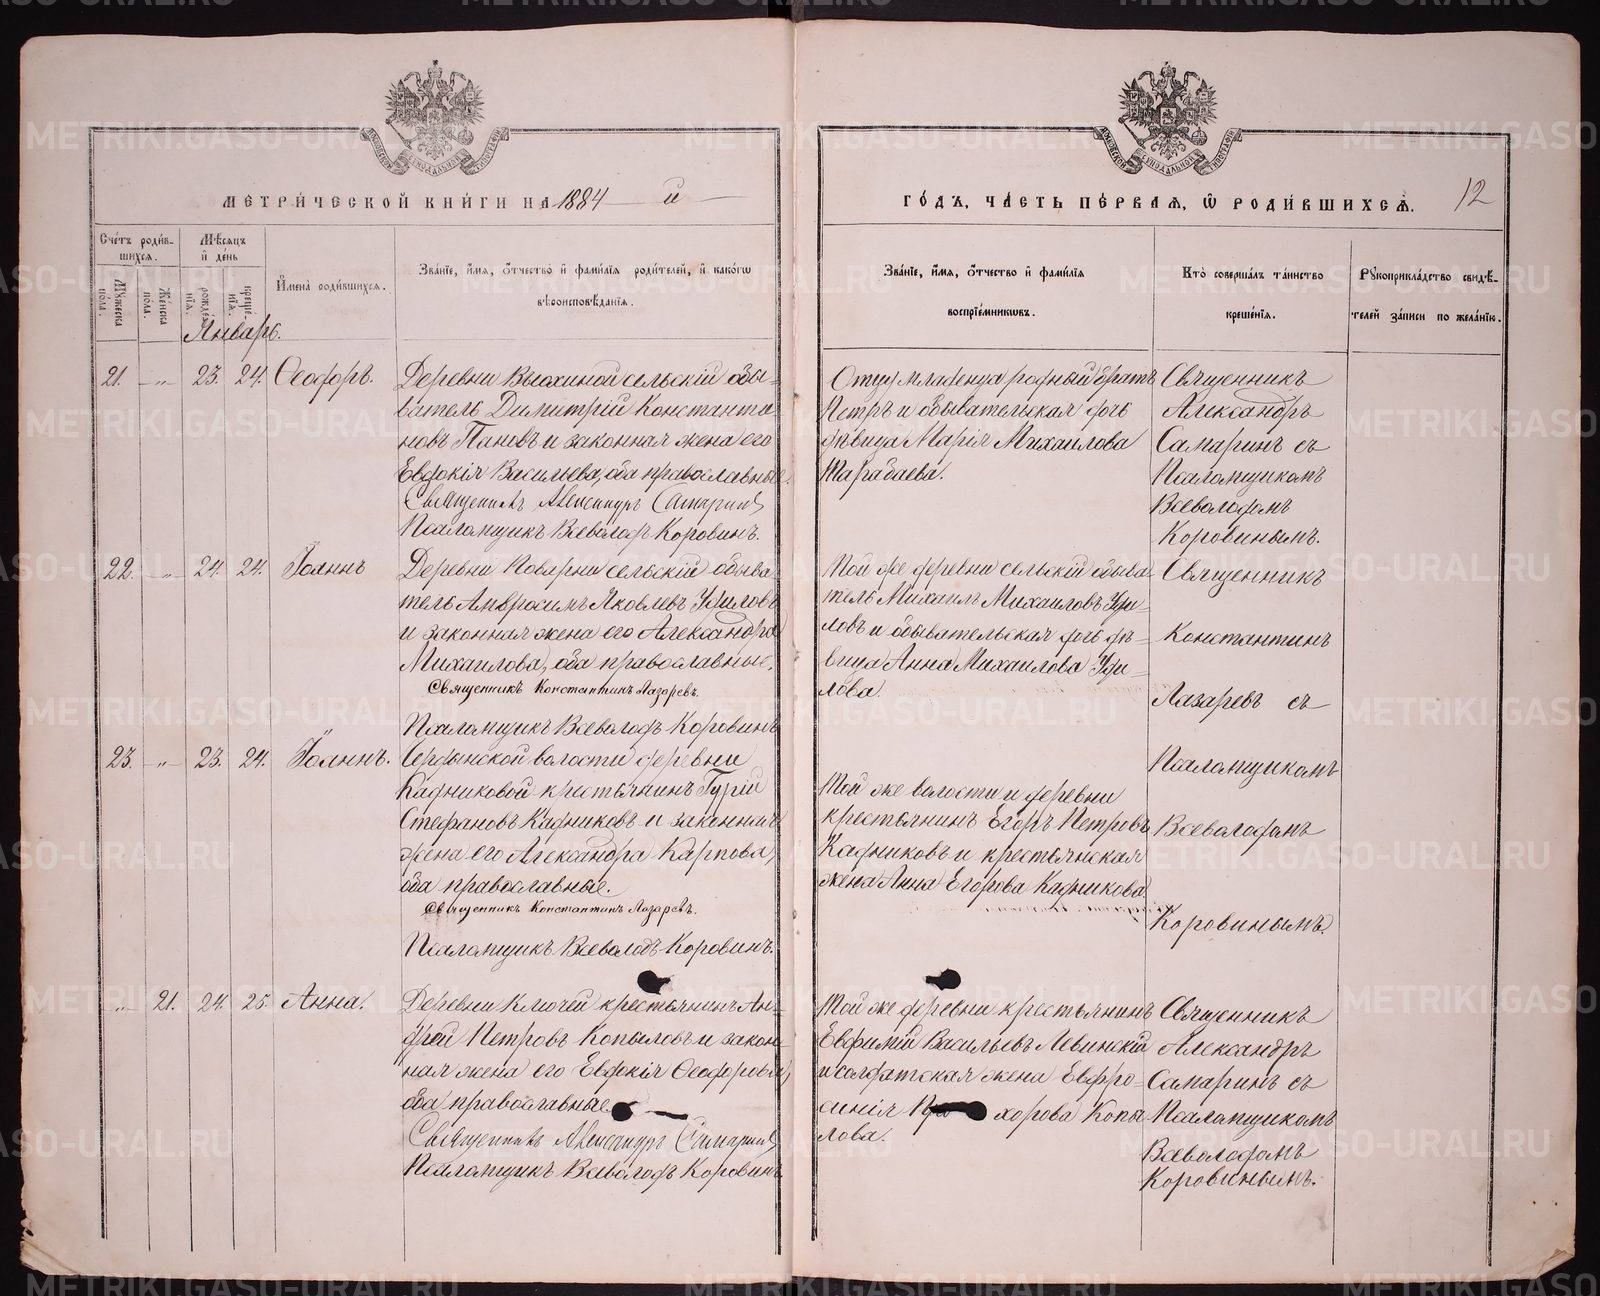 МЕТРИ́ЧЕСКОЙ КНИ́ГИ НА 1884 й
ГО́ДЪ, ЧА́СТЬ ПЕ́РВАЯ, Ѡ РОДИ́ВШИХСѦ.
12
Сче́тъ роди́в-
шихся.
Мѣ́сяцъ
и де́нь
Му́жеска
по́ла.
Же́нска
по́ла.
рожде́-
нія.
креще́-
нія.
Имена̀ роди́вшихся.
Зва́ніе, и́мя, о́тчество и фами́лія роди́телей, и како́гѡ
вѣроисповѣ́данія.
Зва́ніе, и́мя, о́тчество и фами́лія
воспріе́мникѡвъ.
Кто̀ соверша́лъ та́инство
креще́нія.
Рукоприкла́дство свидѣ́-
телей за́писи по жела́нію.
Январь.
21. -„- 23. 24. Ѳеодоръ.
Деревни Вьюхиной сельскій обы-
ватель Димитрій Константи-
новъ Пановъ и законная жена его
Евдокія Васильева, оба православные.
Священникъ Александръ Самаринъ
Псаломщикъ Всеволодъ Коровинъ.
Отцу младенца родный братъ
Петръ и обывательская дочь
дѣвица Марія Михаилова
Тарабаева.
Священникъ
Александръ
Самаринъ съ
Псаломщикомъ
Всеволодомъ
Коровинымъ.
22. -„- 24. 24. Іоаннъ
Деревни Поварни сельскій обыва-
тель Амвросимъ Яковлевъ Уфиловъ
и законная жена его Александра
Михаилова, оба православные.
Священникъ Константинъ Лазаревъ.
Псаломщикъ Всеволодъ Коровинъ
Той же деревни сельскій обыва-
тель Михаилъ Михаиловъ Уфи-
ловъ и обывательская дочь дѣ-
вица Анна Михаилова Уфи-
лова.
Священникъ
Константинъ
Лазаревъ съ
Псаломщикомъ
Всеволодомъ
Коровинымъ.
23. -„- 23. 24. Іоаннъ.
волости деревни
Кадниковой крестьянинъ Гурій
Стефановъ Кадниковъ и законная
жена его Александра Карпова,
оба православные.
Священникъ Константинъ Лазаревъ.
Псаломщикъ Всеволодъ Коровинъ.
Той же волости и деревни
крестьянинъ Егоръ Петровъ
Кадниковъ и крестьянская
жена Анна Егорова Кадникова
-„- 21. 24. 25. Анна.
Деревни Ключей крестьянинъ Ан-
дрей Петровъ Копыловъ и закон-
ная жена его Евдокія Ѳеодорова,
оба православные
Священникъ Александръ Самаринъ
Псаломщикъ Всеволодъ Коровинъ
Той же деревни крестьянинъ
Евфимій Васильевъ Левинскій
и солдатская жена Евфро-
синія Прохорова Копы-
лова.
Священникъ
Александръ
Самаринъ съ
Псаломщикомъ
Всеволодомъ
Коровинымъ.
METRIKI.GASO-URAL.RU